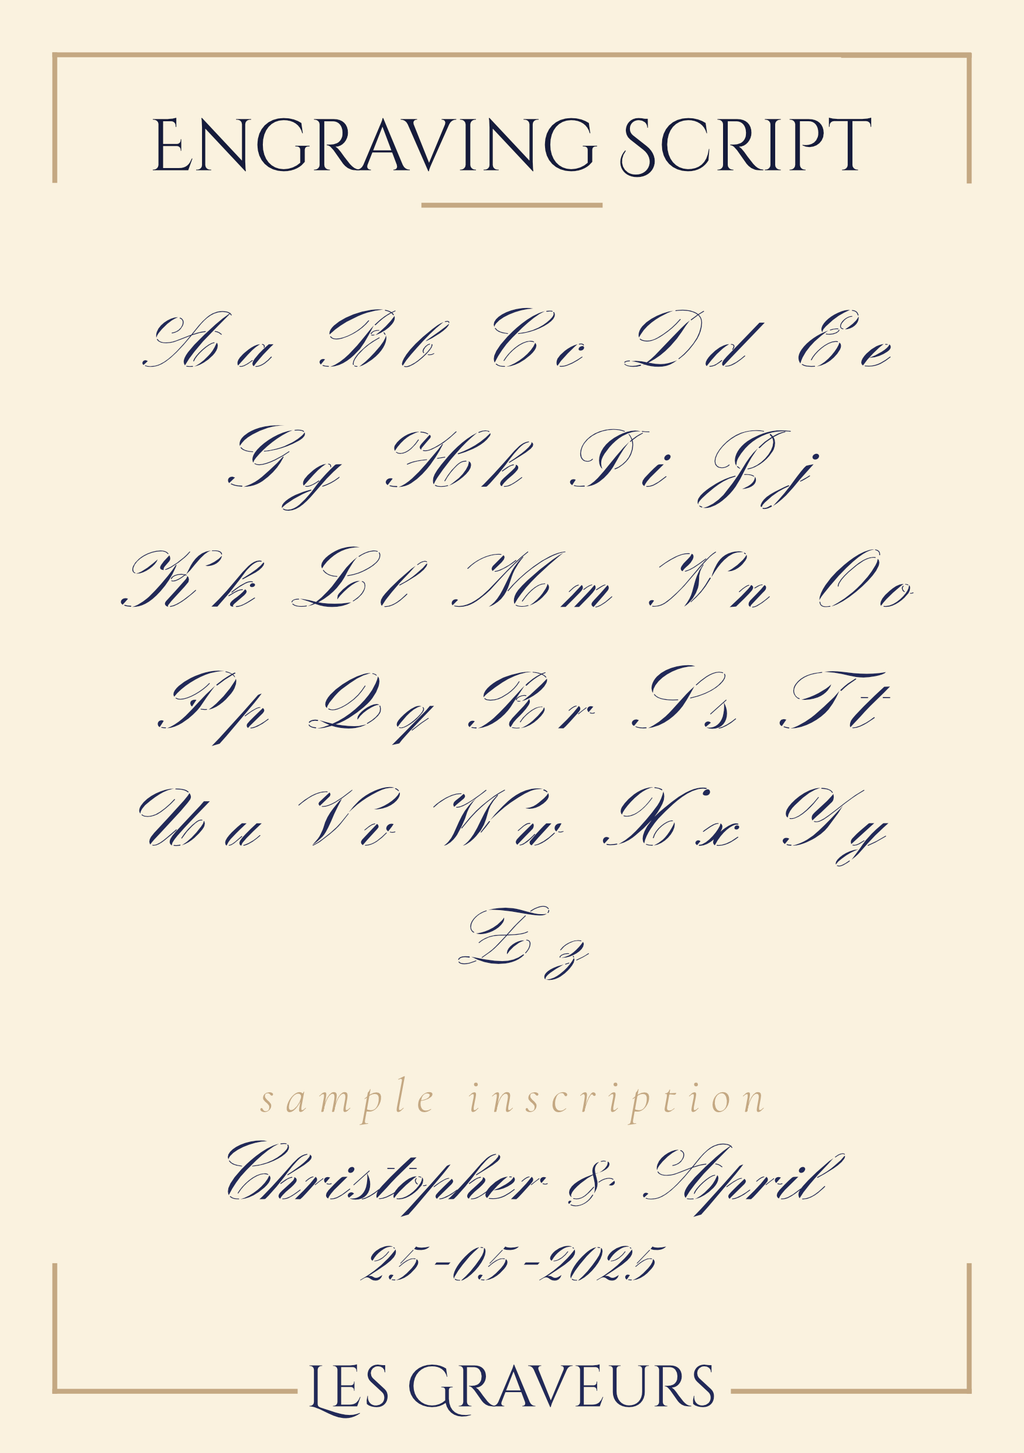 ENGRAVING SCRIPT
A a B b C c D d E e
G g H h I i J j
K k L l M m N n O o
P p Q q R r S s T t
U u V v W w X x Y y
Z z
sample inscription
Christopher & April
25-05-2025
LES GRAVEURS